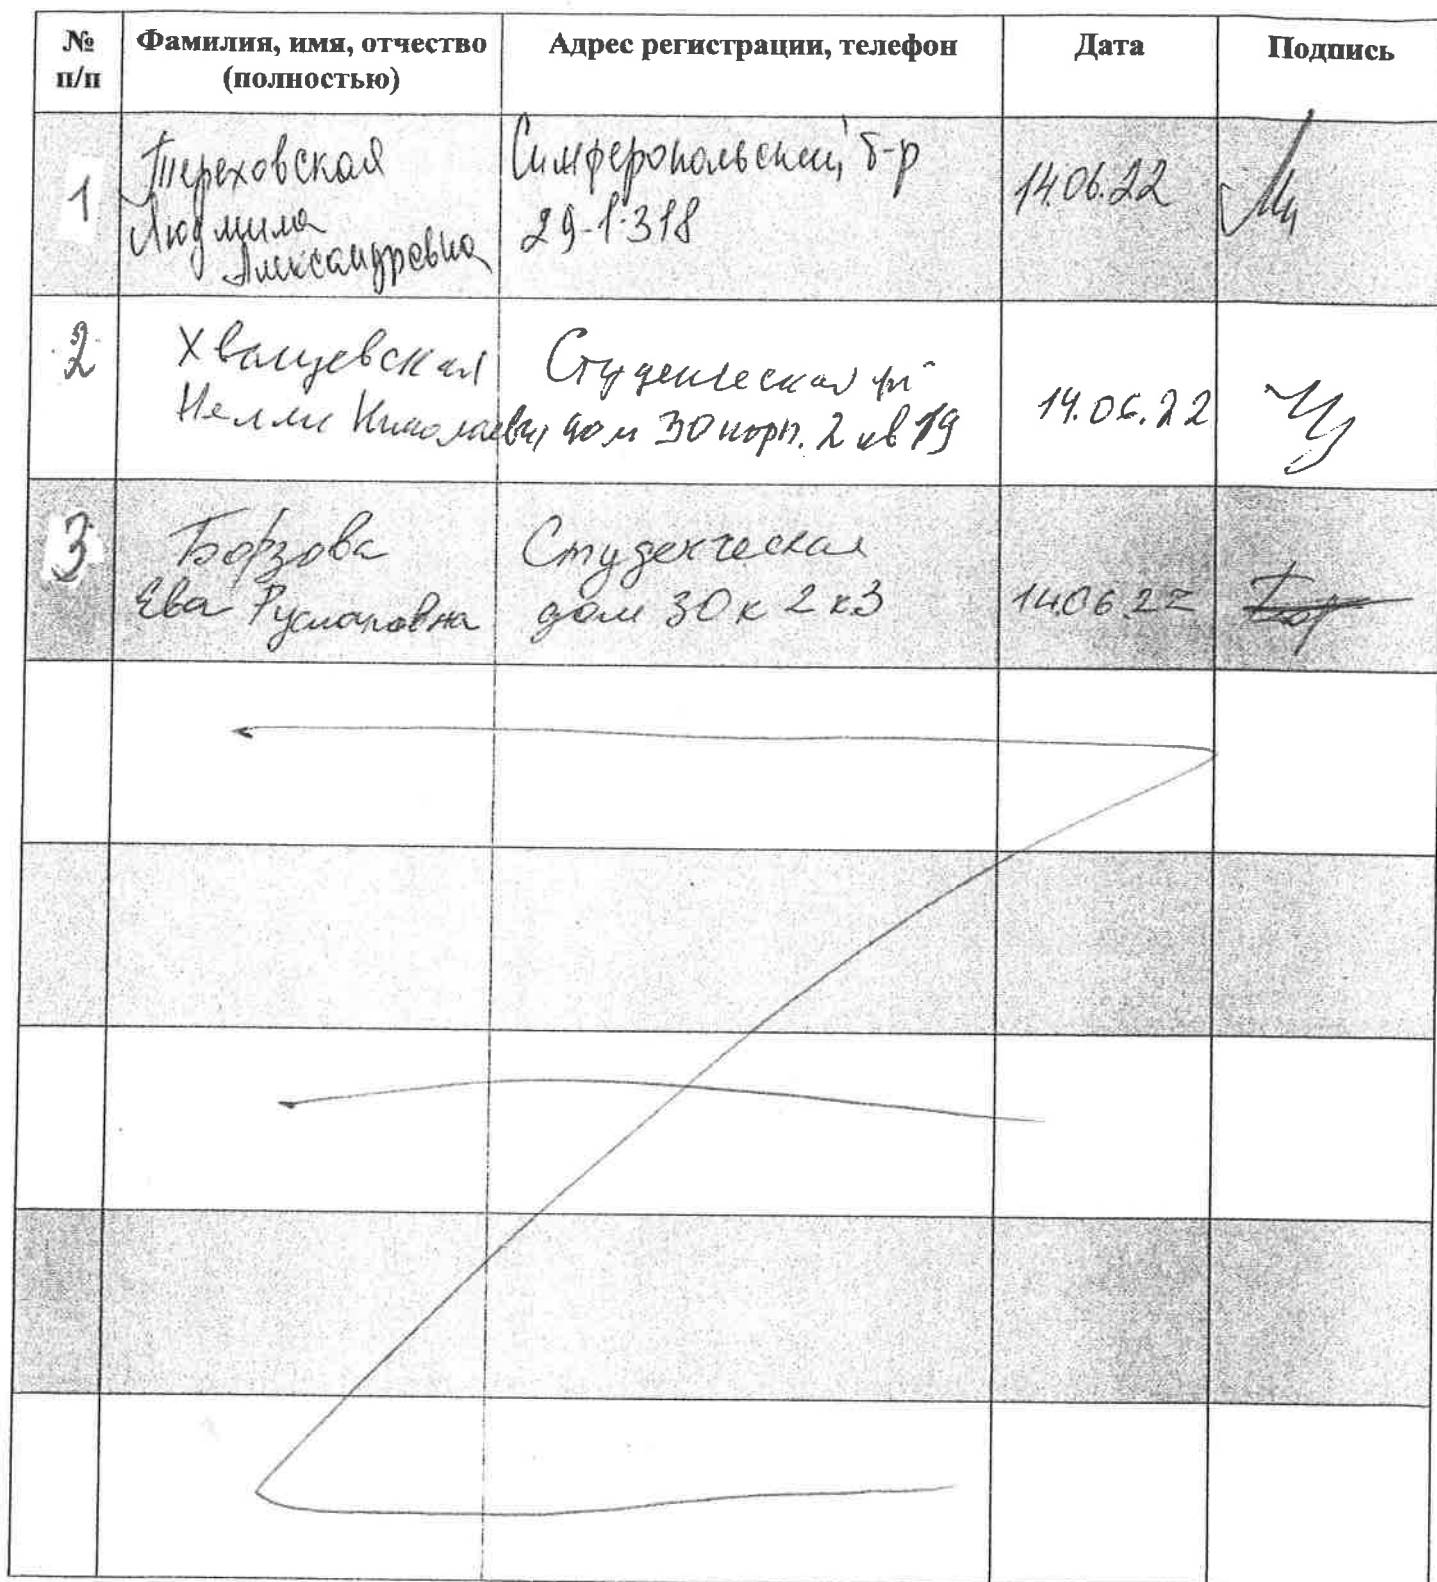 № п/п
Фамилия, имя, отчество (полностью)
Адрес регистрации, телефон
Дата
Подпись
1
Тереховская
Людмила
Александровна
Симферопольский б-р
29-1-318
14.06.22
2
Хванцевская
Нелли Николаевна
Студенческая
дом 30 корп. 2 кв 19
14.06.22
3
Борзова
Ева Руслановна
Студенческая
дом 30 к 2 к 3
14.06.22
Бор